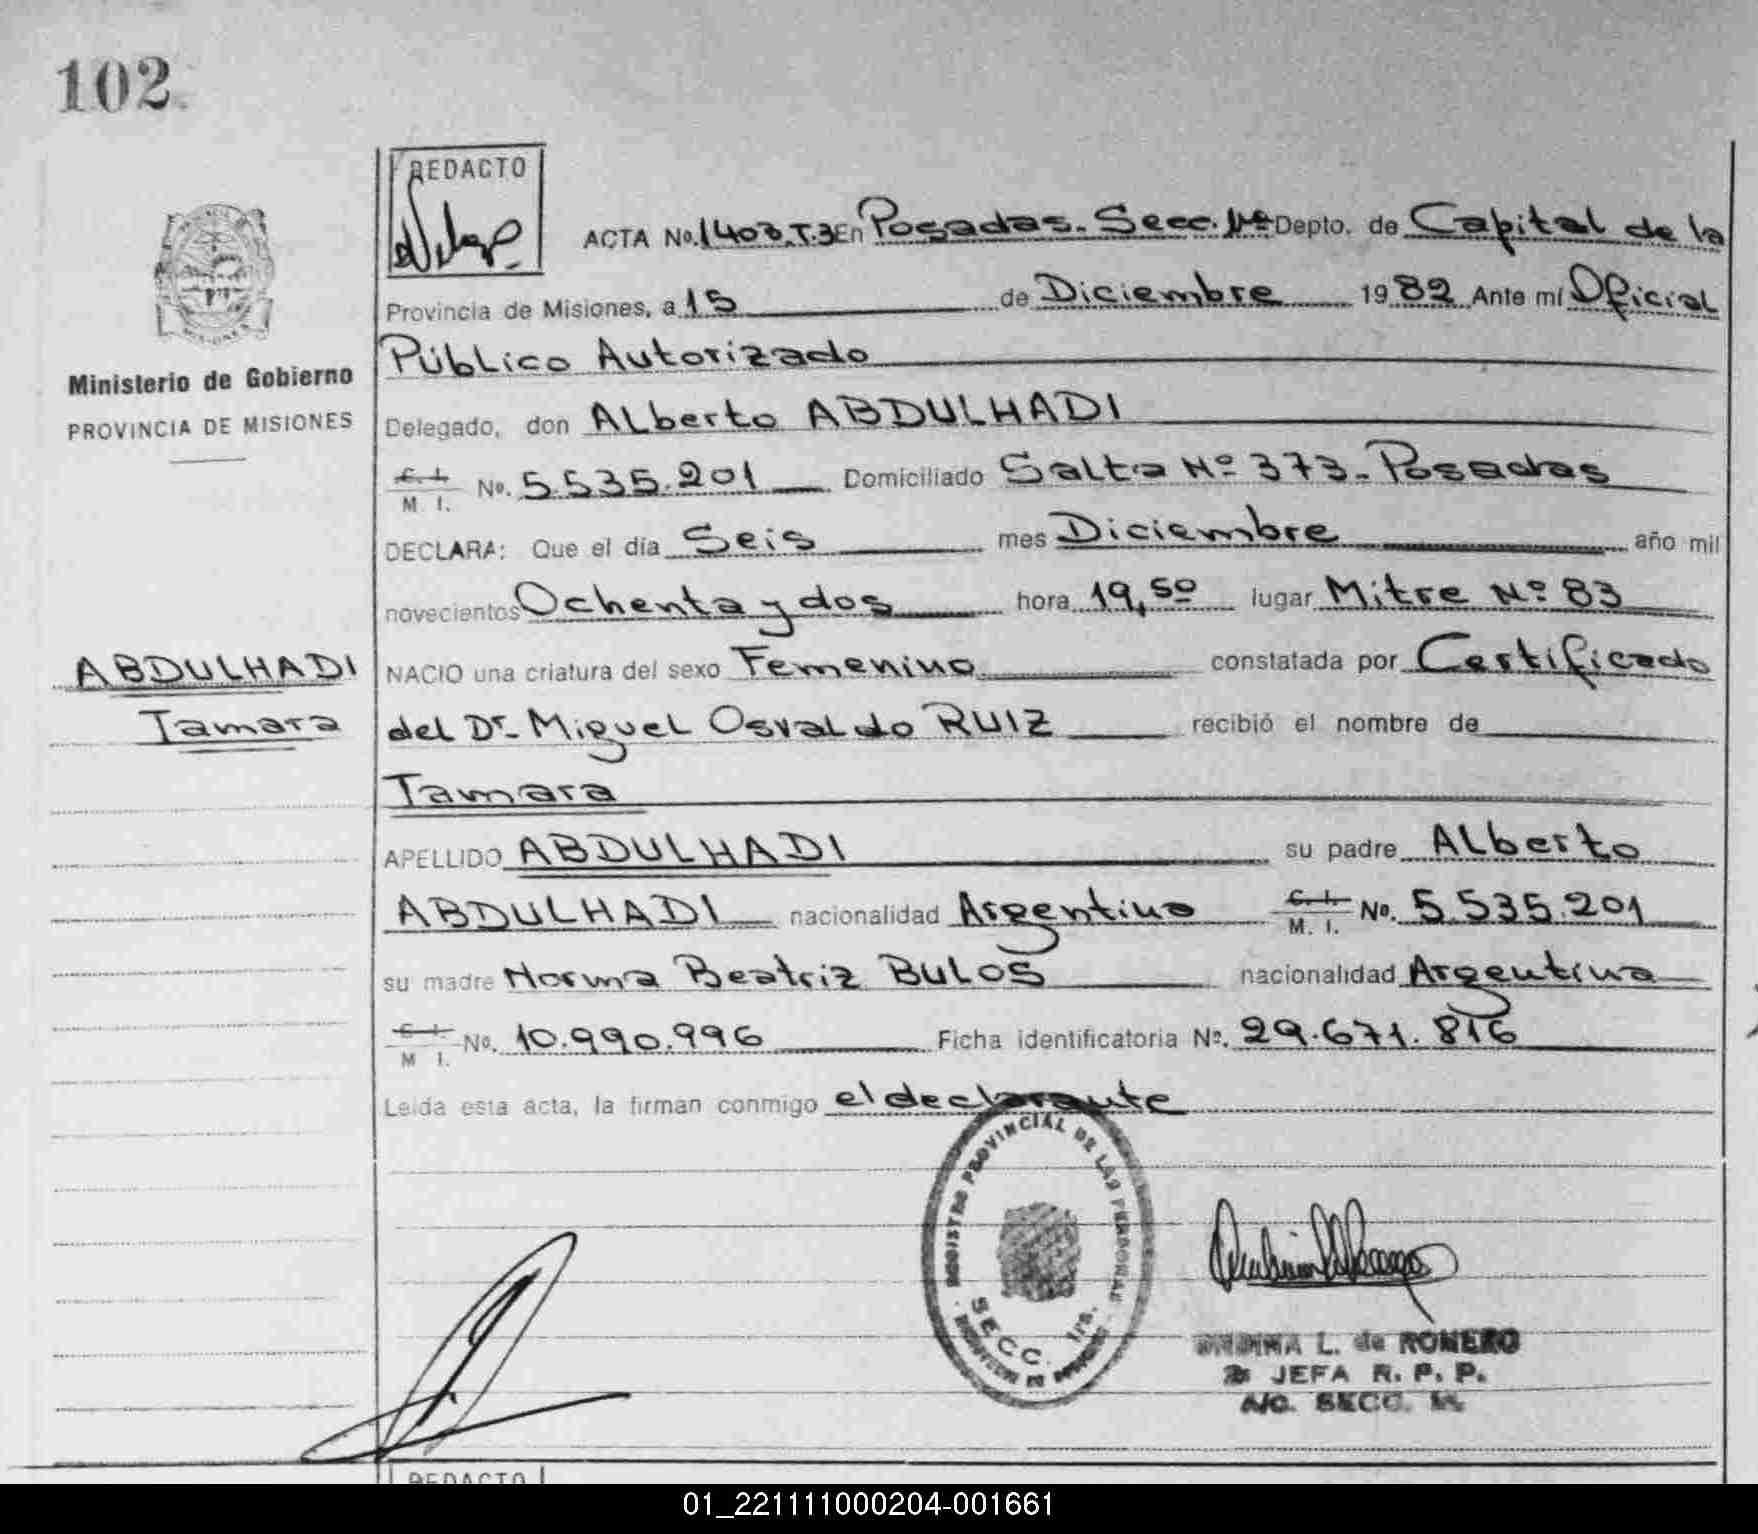 102
REDACTO
ACTA No. 1403, T.3 En Posadas. Secc. 1ra Depto. de Capital de la
Provincia de Misiones, a 15 de Diciembre 1982 Ante mí Oficial
Público Autorizado
Ministerio de Gobierno
PROVINCIA DE MISIONES
Delegado, don Alberto ABDULHADI
C. I. M. I. No. 5.535.201 Domiciliado Salta Nº 373- Posadas
DECLARA: Que el día Seis mes Diciembre año mil
novecientos Ochenta y dos hora 19,50 lugar Mitre Nº 83
ABDULHADI
Tamara
NACIO una criatura del sexo Femenino constatada por Certificado
del Dr. Miguel Osvaldo RUIZ recibió el nombre de
Tamara
APELLIDO ABDULHADI su padre Alberto
ABDULHADI nacionalidad Argentino C. I. M. I. No. 5.535.201
su madre Norma Beatriz BULOS nacionalidad Argentina
C. I. M. I. No. 10.990.996 Ficha identificatoria Nº. 29.671.816
Leída esta acta, la firman conmigo el declarante
REGISTRO PROVINCIAL DE LAS PERSONAS
SECC. 1ra.
L. de ROMERO
JEFA R. P. P.
A/C. SECC.
REDACTO
01_221111000204-001661